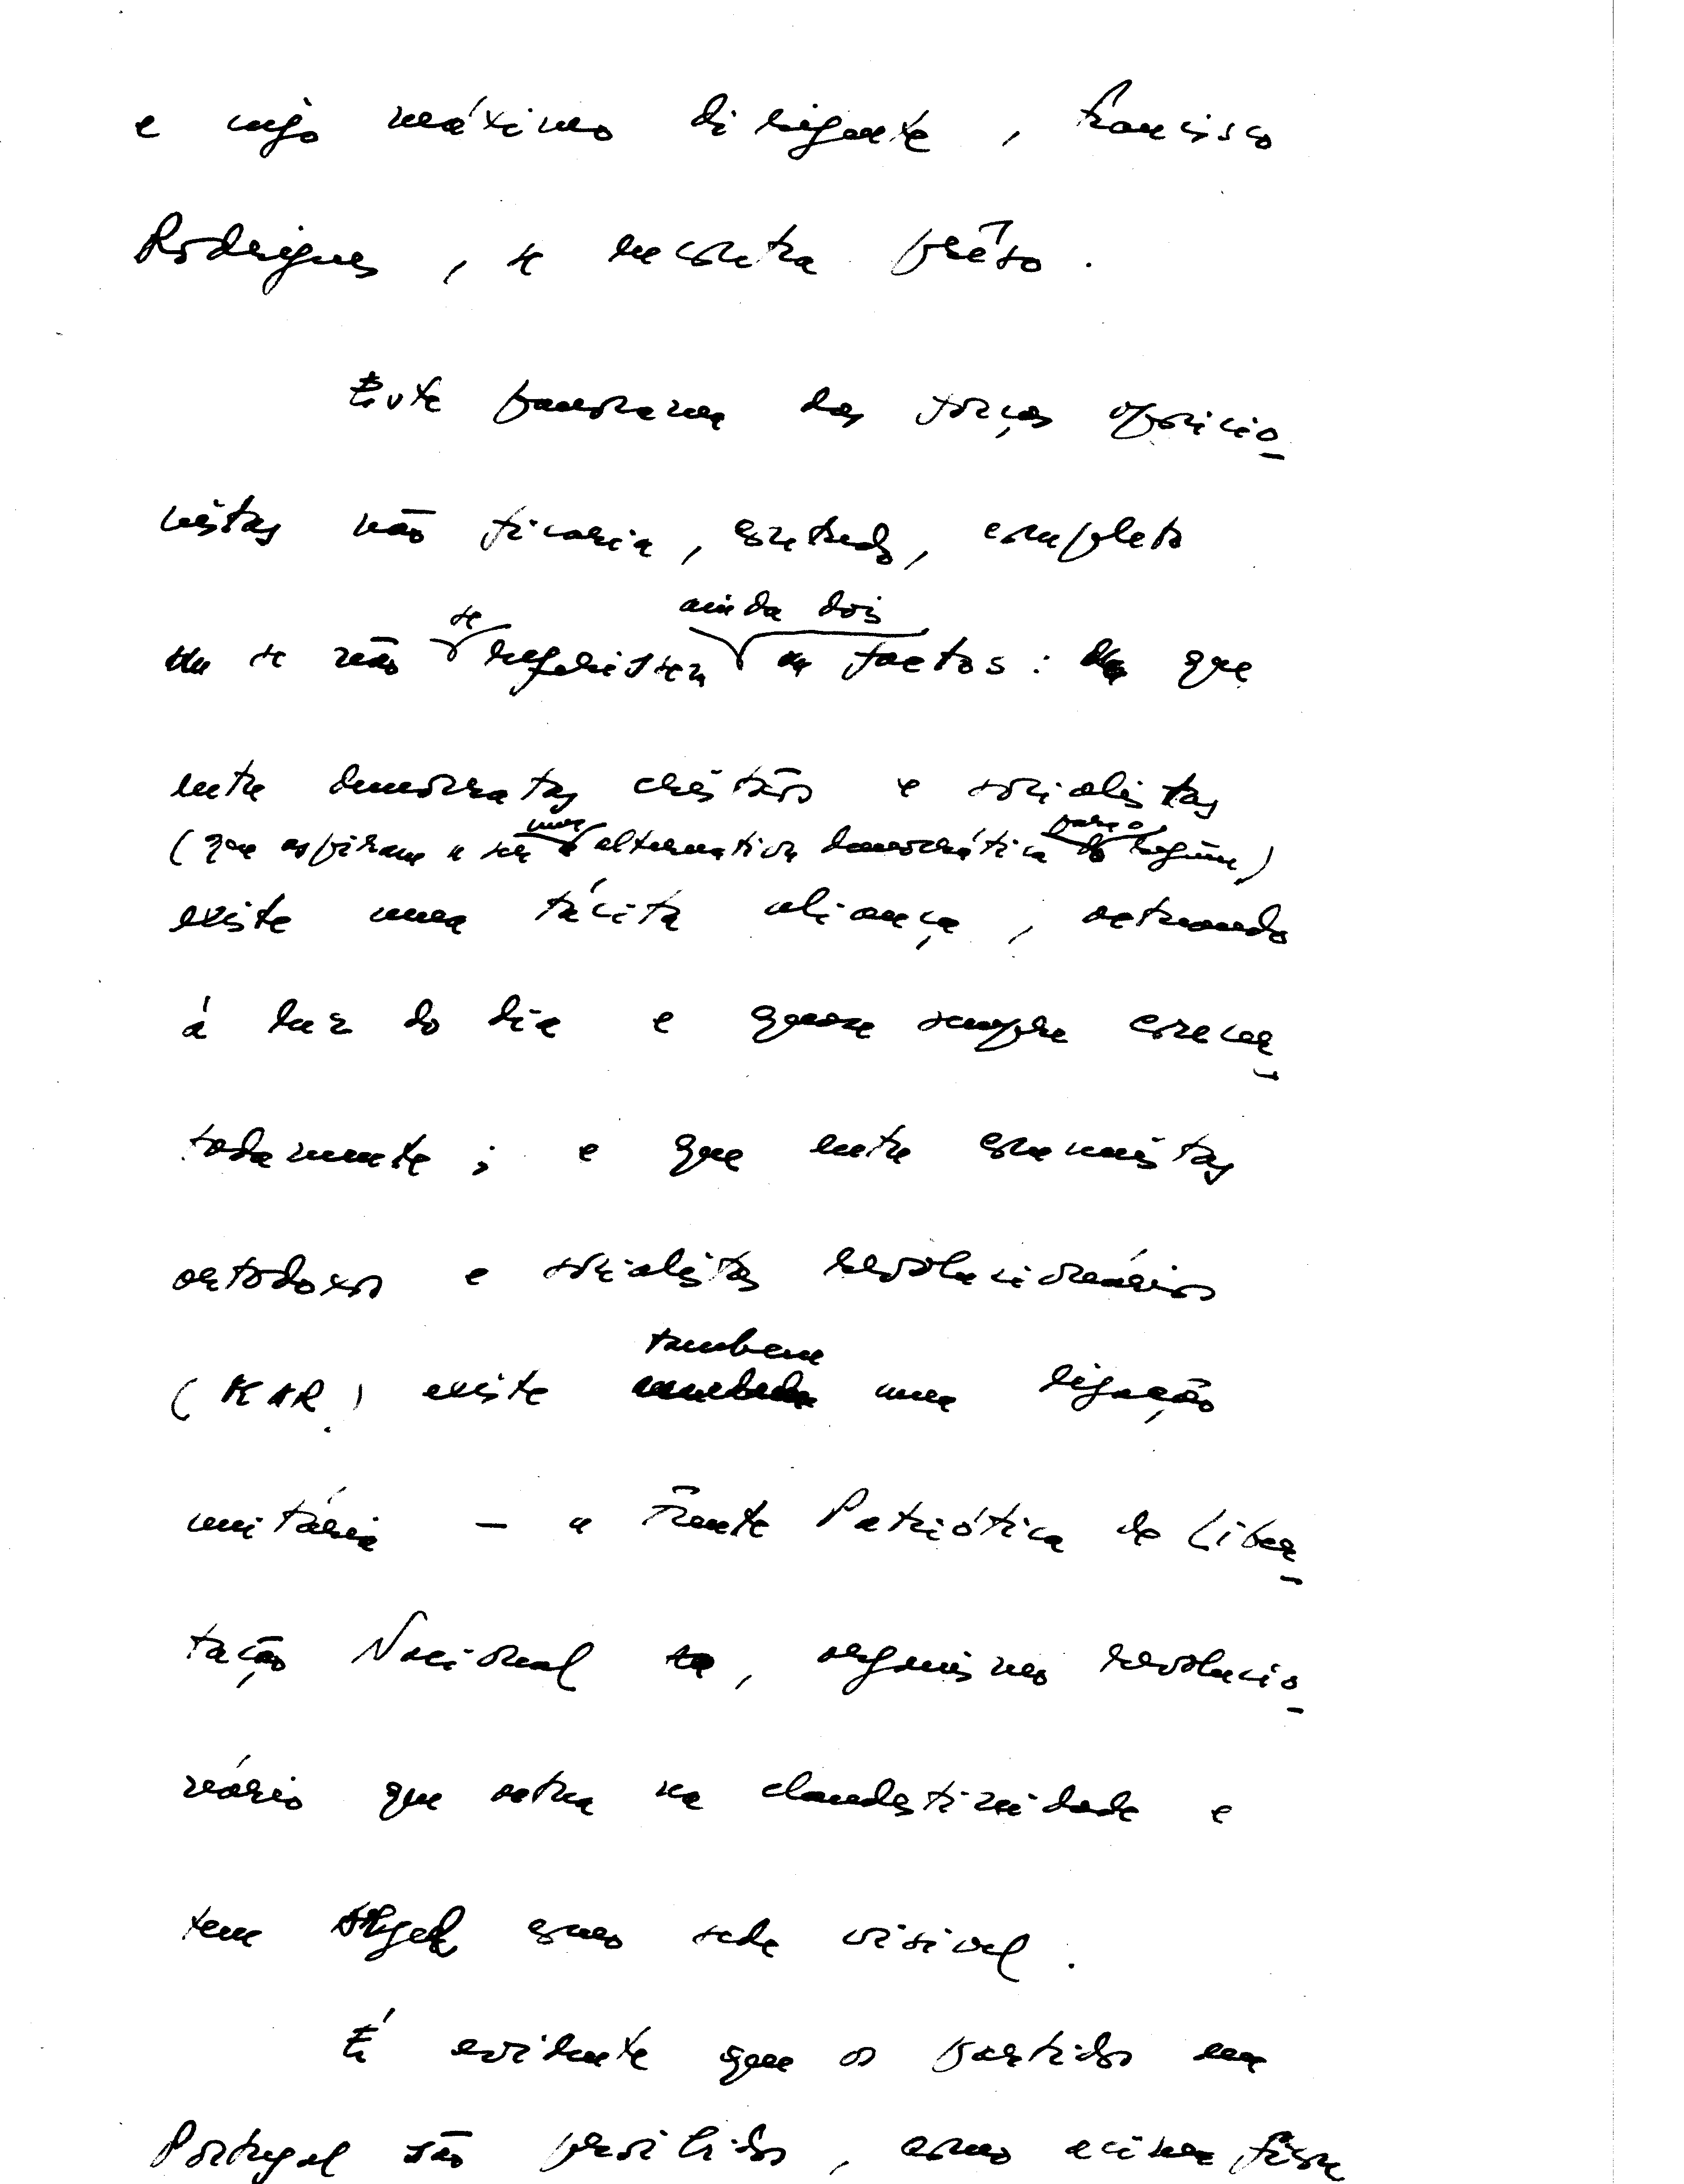 e cujo máximo dirigente, Francisco
Rodrigues, se encontra prêso.
Este panorama das forças oposicio-
nistas não ficaria, contudo, completo
se não se registassem ainda dois factos: que
entre democratas cristãos e socialistas
(que aspiram a ser uma alternativa democrática para o regime)
existe uma tácita aliança, actuando
á luz do dia e quase sempre concer-
tadamente; e que entre comunistas
ortodoxos e socialistas revolucionários
(MAR) existe tambem uma ligação
unitária — a Frente Patriótica de Liber-
tação Nacional, organismo revolucio-
nário que actua na clandestinidade e
tem Argel como sede visivel.
É evidente que os partidos em
Portugal são proibidos, como acima fica